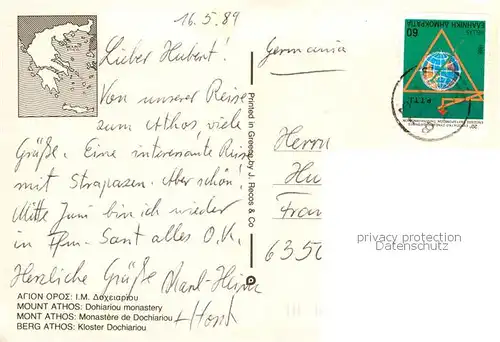 16.5.89
Lieber Hubert!
Von unserer Reise
zum Athos, viele
Grüße. Eine interessante Reise
mit Strapazen. Aber schön!
Mitte Juni bin ich wieder
in Ffm. Sonst alles O.K.
Herzliche Grüße Karl-Heinz
+ Horst
ΑΓΙΟΝ ΟΡΟΣ: Ι.Μ. Δοχειαρίου
MOUNT ATHOS: Dohiariou monastery
MONT ATHOS: Monastère de Dochiariou
BERG ATHOS: Kloster Dochiariou
Printed in Greece by J. Recos & Co
Germania
60
ΕΛΛΗΝΙΚΗ ΔΗΜΟΚΡΑΤΙΑ
HELLAS
P.T.T.I.
Herrn
Hu
Fran
6350
privacy protection
Datenschutz